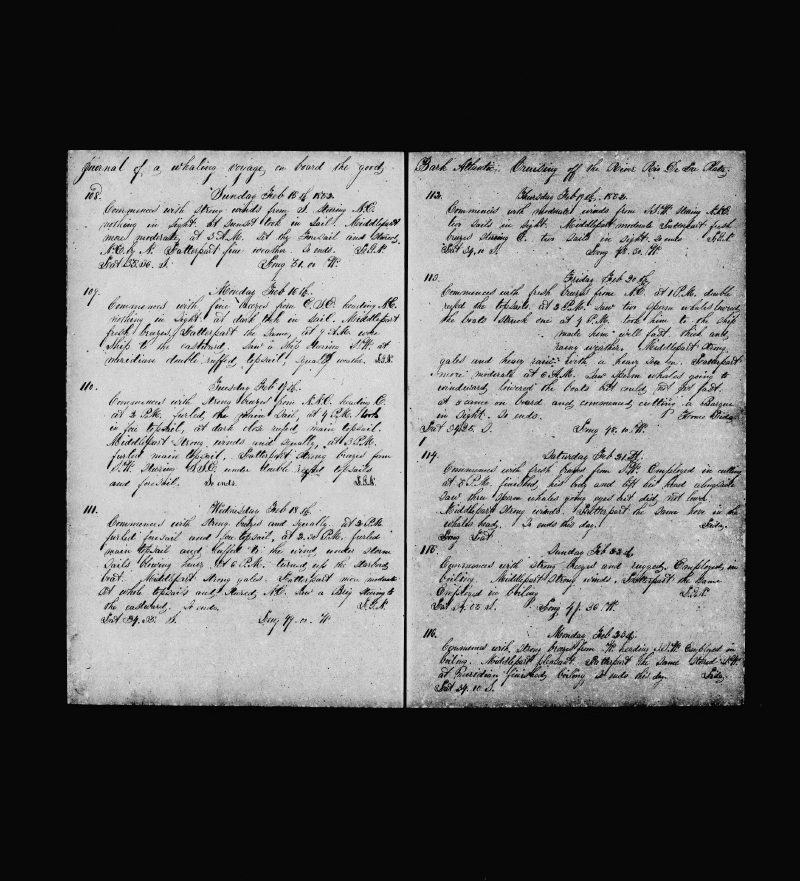 Journal of a whaling voyage on board the good
108. Sunday Feb 15th 1852
Commences with strong winds from S. stering N.E.
nothing in sight. at sunset took in sail. Middlepart
more moderate at 5 A.M. set the foresail and stered
N.E. by N. Latterpart fine weather. So ends.
Lat S. Long 51. W.
109. Monday Feb 16th
Commences with fine brezes from heading N.E.
nothing in sight at dark took in sail. Middlepart
fresh brezes, Latterpart the same, at 7 A.M. wore
ship to the eastward. Saw a ship stering at
meridian double reffed topsail, squally weather.
110. Tuesday Feb 17th
Commences with strong brezes from N.N.E. heading E.
at 2 P.M. furled the main sail, at 4 P.M. took
in fore topsail, at dark close refed main topsail.
Middlepart strong winds and squally, at 3 P.M.
furled main topsail. Latterpart strong brezes from
stering under double refed topsails
and foresail. So ends.
111. Wednesday Feb 18th
Commences with strong brezes and squally. at 2 P.M.
furled foresail and fore topsail, at 2.30 P.M. furled
main topsail and luffed to the wind under storm
sails blowing heavy at 6 P.M. turned up the starboard
boat. Middlepart strong gales. Latterpart more moderate
at whole topsails and stered N.E. Saw a Brig stering to
the eastward. So ends.
Lat 34. S. Long 49. W
Bark Atlantic. Cruising off the River Rio De La Plata
112. Thursday Feb 19th, 1852.
Commences with moderate winds from stering
two sails in sight. Middlepart moderate Latterpart fresh
brezes stering E. two sails in sight. So ends
Lat 34.10 S. Long 48.30. W
113. Friday Feb 20th
Commences with fresh brezes from N.E. at 1 P.M. double
refed the topsails, at 2 P.M. saw two sperm whales lowered
the boats struck one at 4 P.M. took him to the ship
made him well fast thick and
rainy weather. Middlepart strong
gales and heavy rain with a heavy sea on. Latterpart
more moderate at 6 A.M. saw sperm whales going to
windward, lowered the boats but could not get fast
at 8 came on board and commenced cutting a Barque
in sight. So ends.
Lat 34. S. Long 48.10. W.
114. Saturday Feb 21st
Commences with fresh brezes from Employed in cutting
at 8 P.M. finished, his body and left his head alongside
saw three sperm whales going eyes out did not lower.
Middlepart strong winds. Latterpart the same hove in the
whales head. So ends this day.
Long Lat
115. Sunday Feb 22d
Commences with strong brezes and rugged. Employed in
boiling. Middlepart strong winds. Latterpart the same
Employed in boiling
Lat 34. S. Long 47.36. W.
116. Monday Feb 23d
Commences with strong brezes from W. heading Employed in
boiling. Middlepart pleasant. Latterpart the same stered
at Meridian finished boiling So ends this day.
Lat 34.10 S.